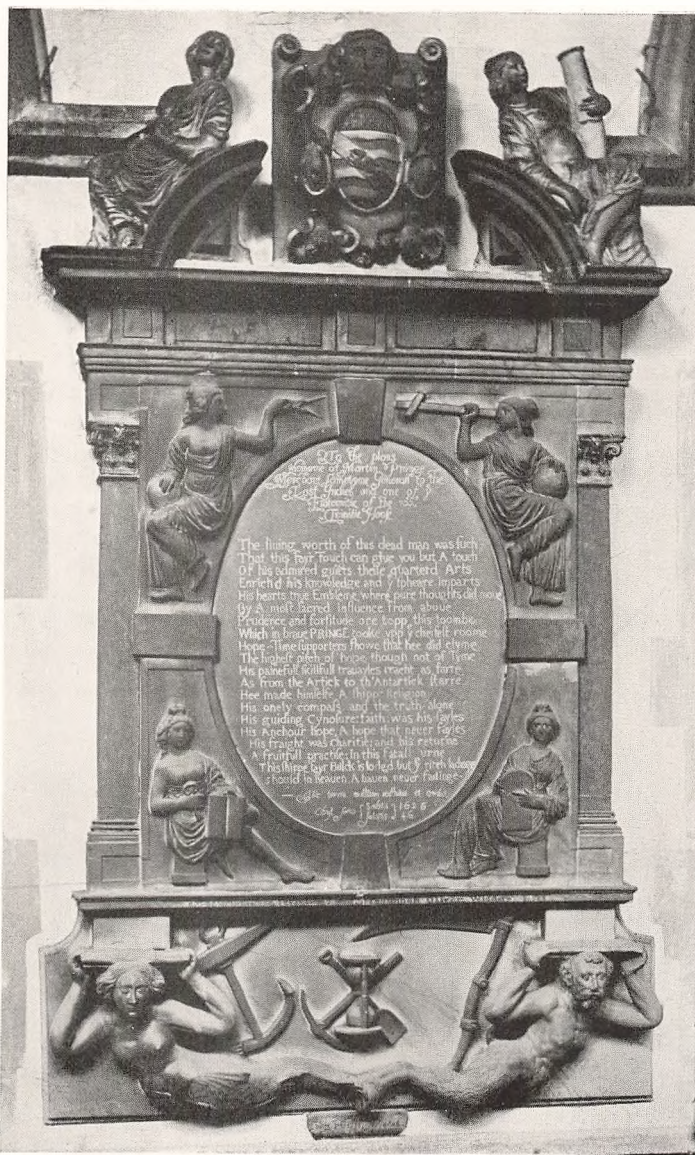 To the pious
Memorie of Martin Pringe
Merchant sometyme Generall to the
East Indies and one of ye
fraternitie of the
Trinitie House
The living worth of this dead man was such
That this fayr touch can give you but A touch
Of his admired guifts theise quarterd Arts
Enrich'd his knowledge and ye spheare imparts
His hearts true Embleme where pure thoughts did moue
By A most sacred Influence from aboue
Prudence and fortitude are topp this toombe
Which in braue PRINGE tooke vpp ye cheifest roome
Hope-Time supporters showe that hee did clyme
The highest pitch of hope though not of Time
His painefull skillfull trauayles reacht as farre
As from the Artick to th'Antartick starre
Hee made himselfe A shipp: Religion
His onely compass and the truth alone
His guiding Cynosure: faith was his sayles
His Anchour Hope, A hope that never fayles
His fraight was charitie: and his returne
A fruitfull practise: In this fatall vrne
This shipps fayr Bulck is lodg'd but ye ritch lading
Is hous'd in heauen A hauen neuer fadinge
1626
46